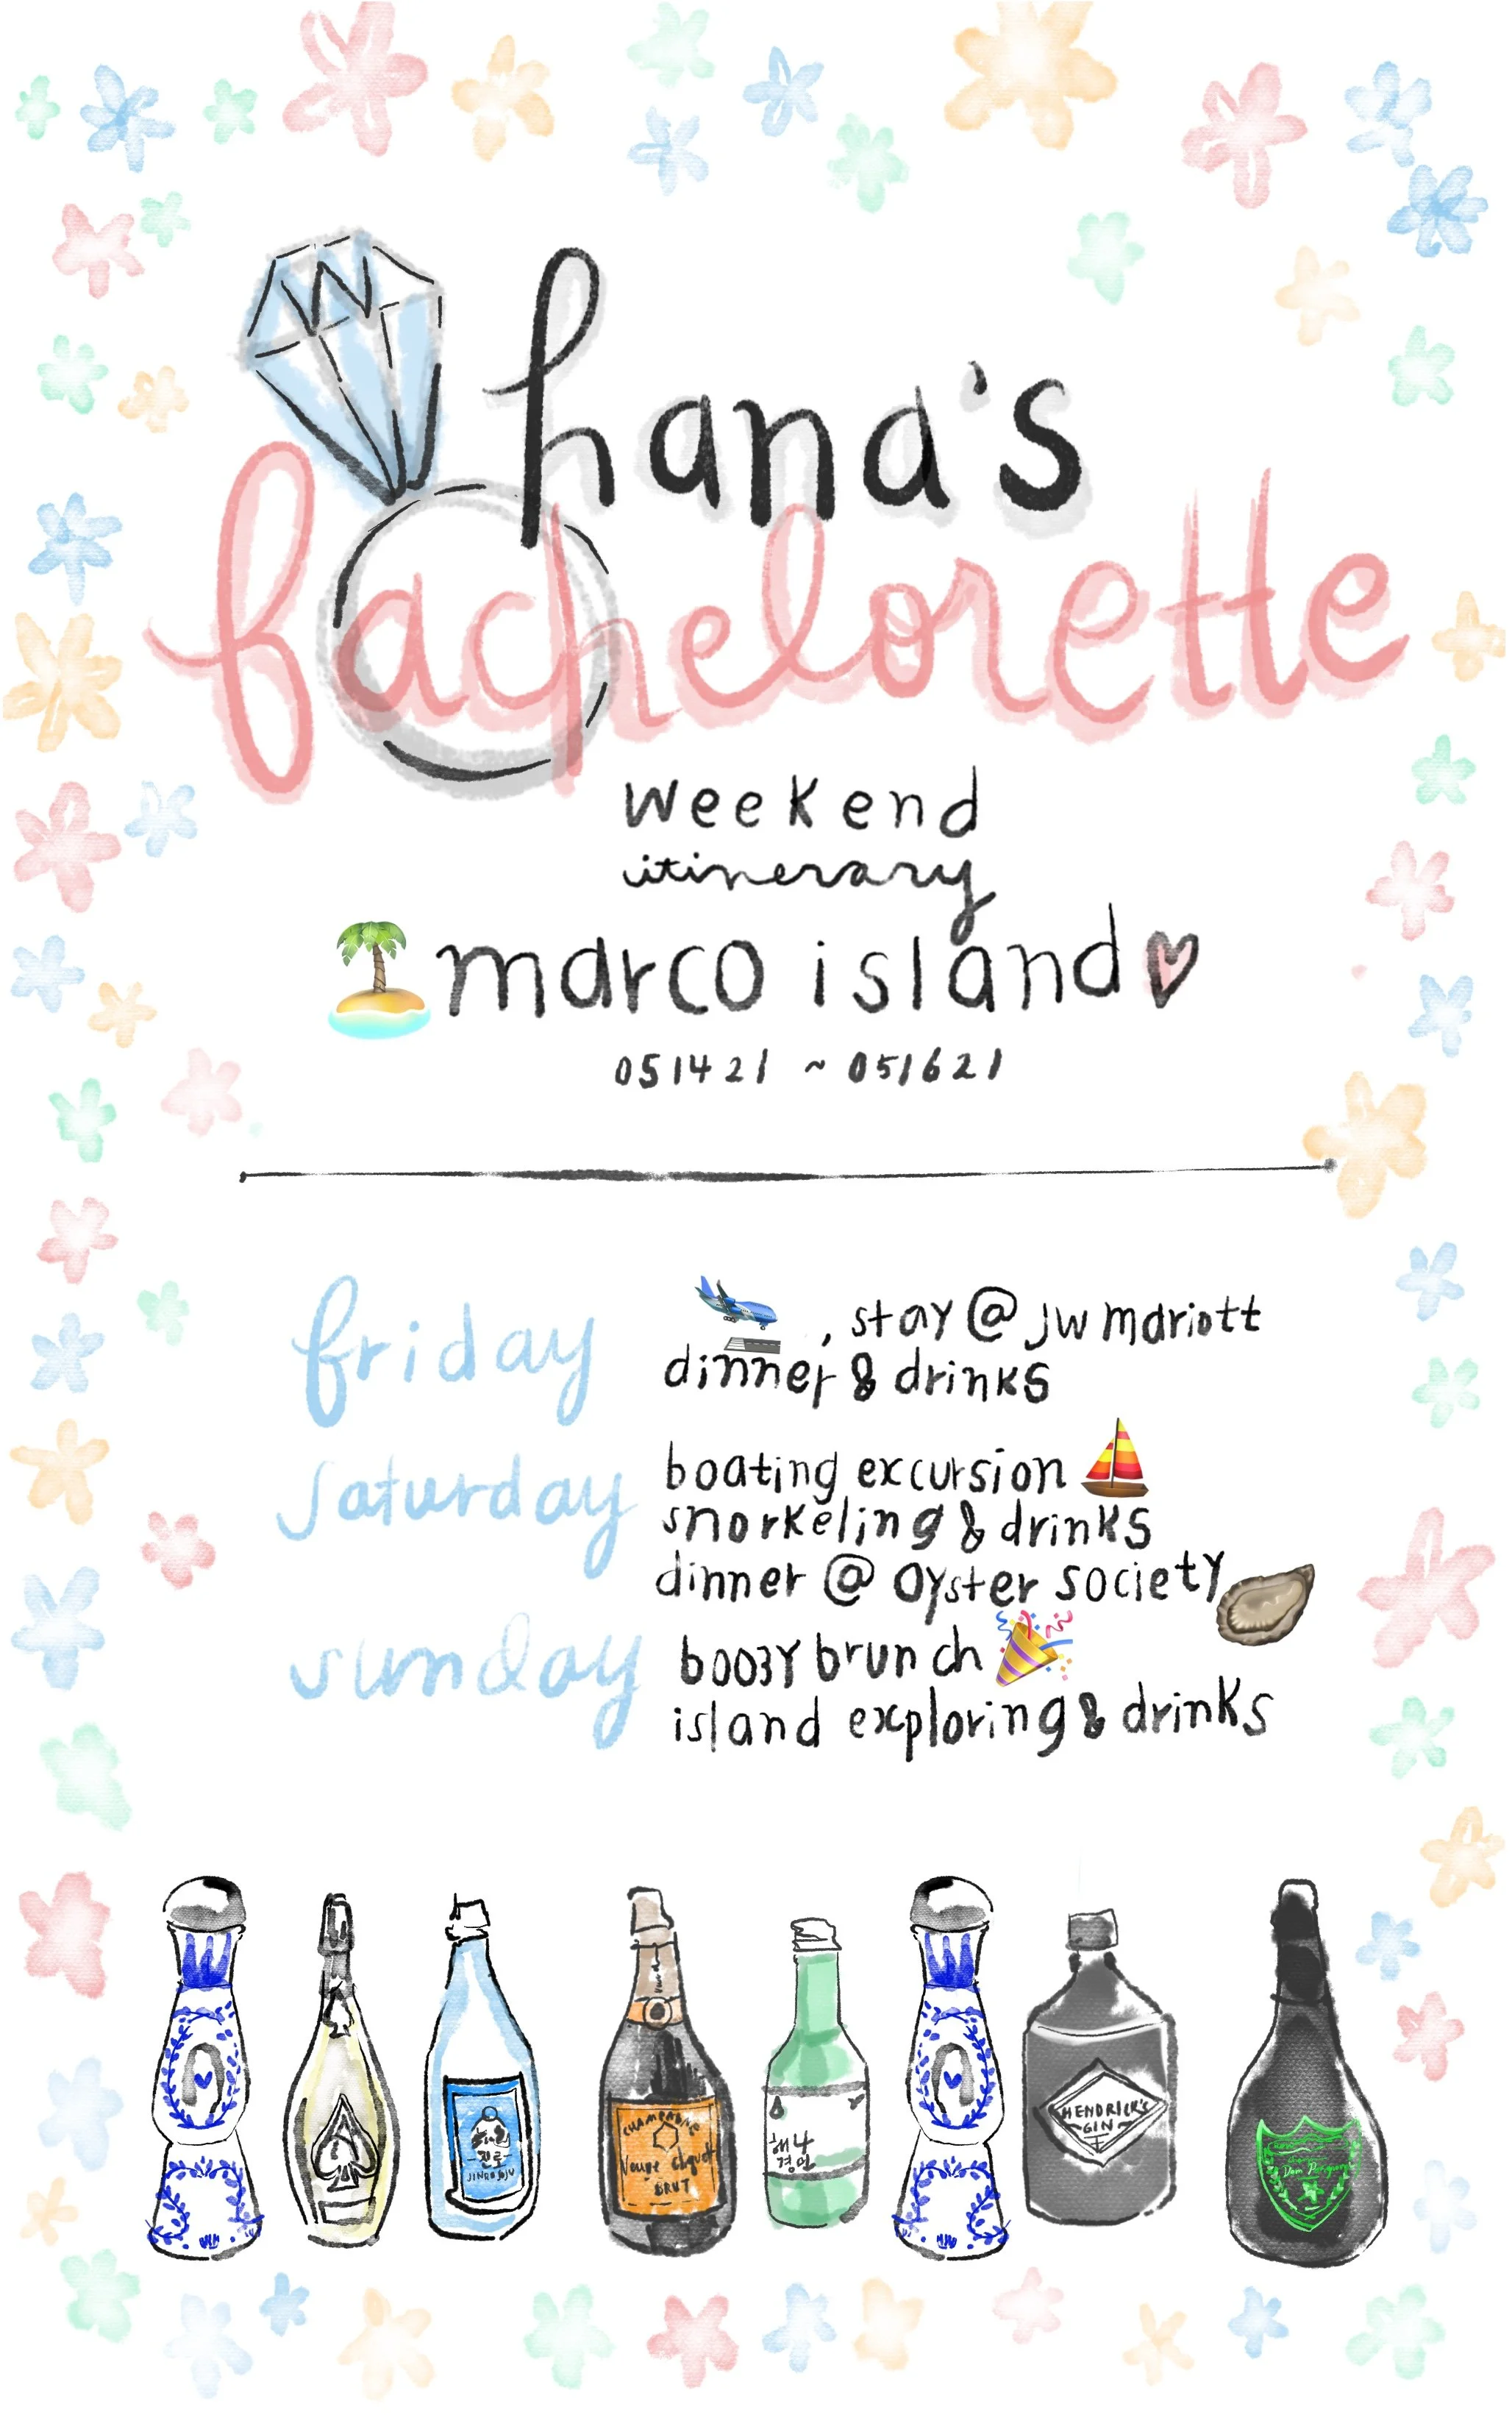 hana's
bachelorette
weekend
itinerary
marco island
051421 ~ 051621
friday
, stay @ jw mariott
dinner & drinks
saturday
boating excursion
snorkeling & drinks
dinner @ oyster society
sunday
boozy brunch
island exploring & drinks
진로
JINRO SOJU
CHAMPAGNE
Veuve Clicquot
BRUT
해나
경민
HENDRICK'S
GIN
Dom Perignon